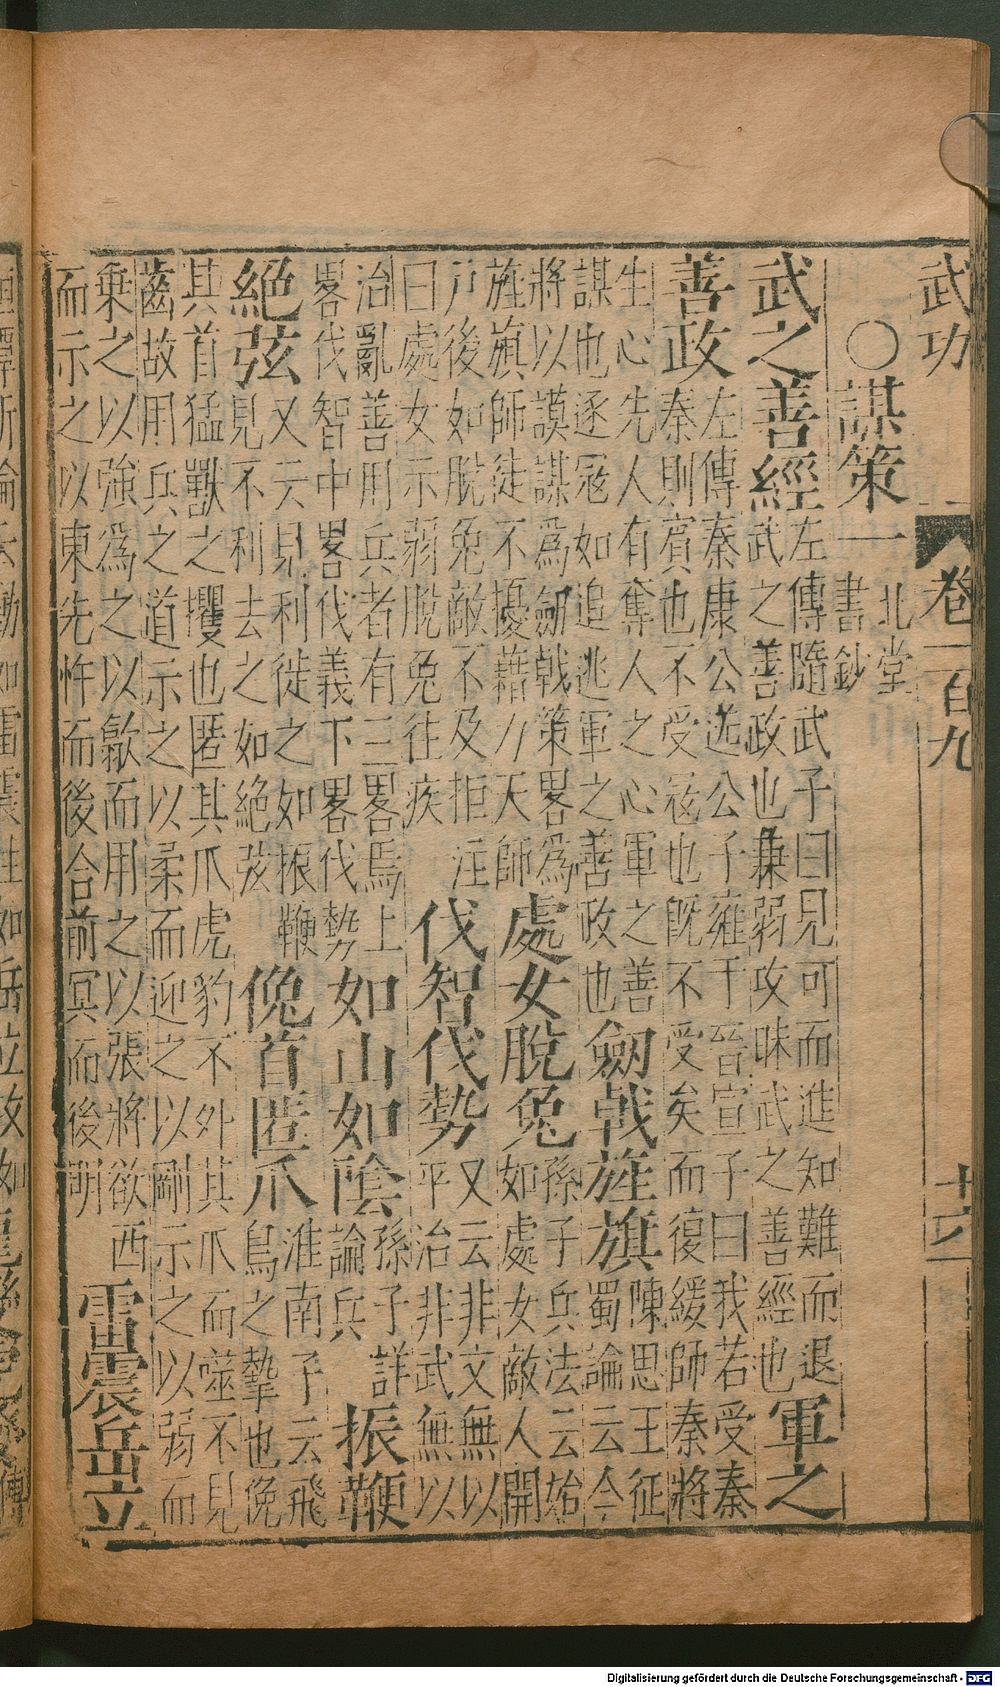 武功 卷一百九 十六
○謀策一
北堂
書鈔
武之善經
左傳隨武子曰見可而進知難而退
武之善政也兼弱攻昧武之善經也
軍之
善政
左傳秦康公送公子雍于晉宣子曰我若受秦
秦則賓也不受寇也既不受矣而復緩師秦將
生心先人有奪人之心軍之善
謀也逐寇如追逃軍之善政也
劒戟旌旗
陳思王征
蜀論云今
將以謨謀爲劒戟策畧爲
旌旗師徒不擾藉力天師
處女脫兔
孫子兵法云始
如處女敵人開
戸後如脫兔敵不及拒注
曰處女示弱脫兔往疾
伐智伐勢
又云非文無以
平治非武無以
治亂善用兵者有三畧焉上
畧伐智中畧伐義下畧伐勢
如山如陰
孫子詳
論兵
振鞭
絕弦
又云見利徙之如振鞭
見不利去之如絕弦
俛首匿爪
淮南子云飛
鳥之摯也俛
其首猛獸之攫也匿其爪虎豹不外其爪而噬不見
齒故用兵之道示之以柔而迎之以剛示之以弱而
乘之以強爲之以歙而用之以張將欲西
而示之以東先忤而後合前冥而後明
雷震岳立
Digitalisierung gefördert durch die Deutsche Forschungsgemeinschaft - DFG